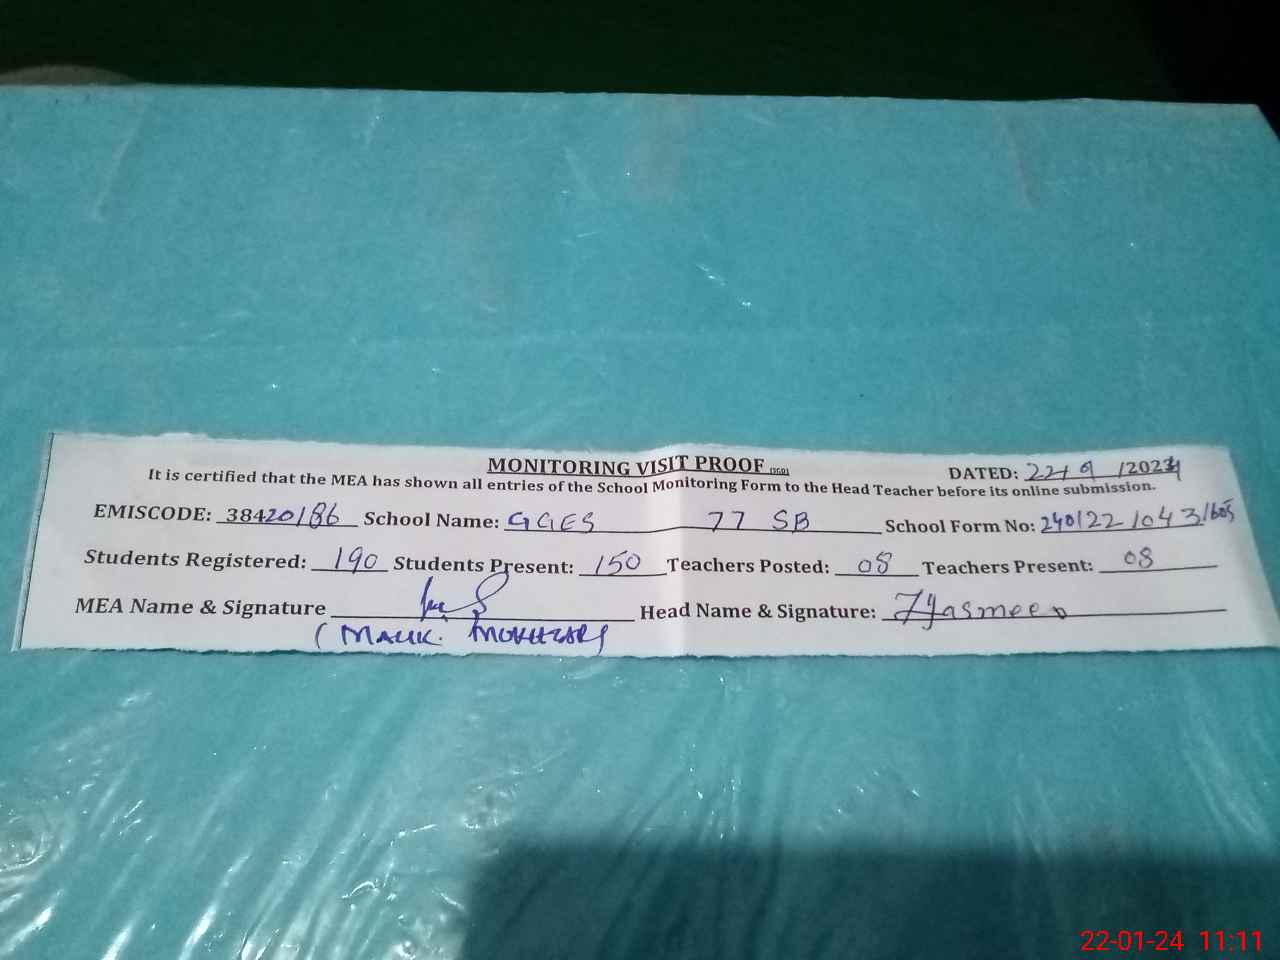 MONITORING VISIT PROOF
DATED: 22/ 9 /2024
It is certified that the MEA has shown all entries of the School Monitoring Form to the Head Teacher before its online submission.
EMISCODE: 38420186 School Name: GGES 77 SB School Form No: 240122 1043 1605
Students Registered: 190 Students Present: 150 Teachers Posted: 08 Teachers Present: 08
MEA Name & Signature Head Name & Signature: Yasmeen
(MALIK. MUKHTAR)
22-01-24 11:11